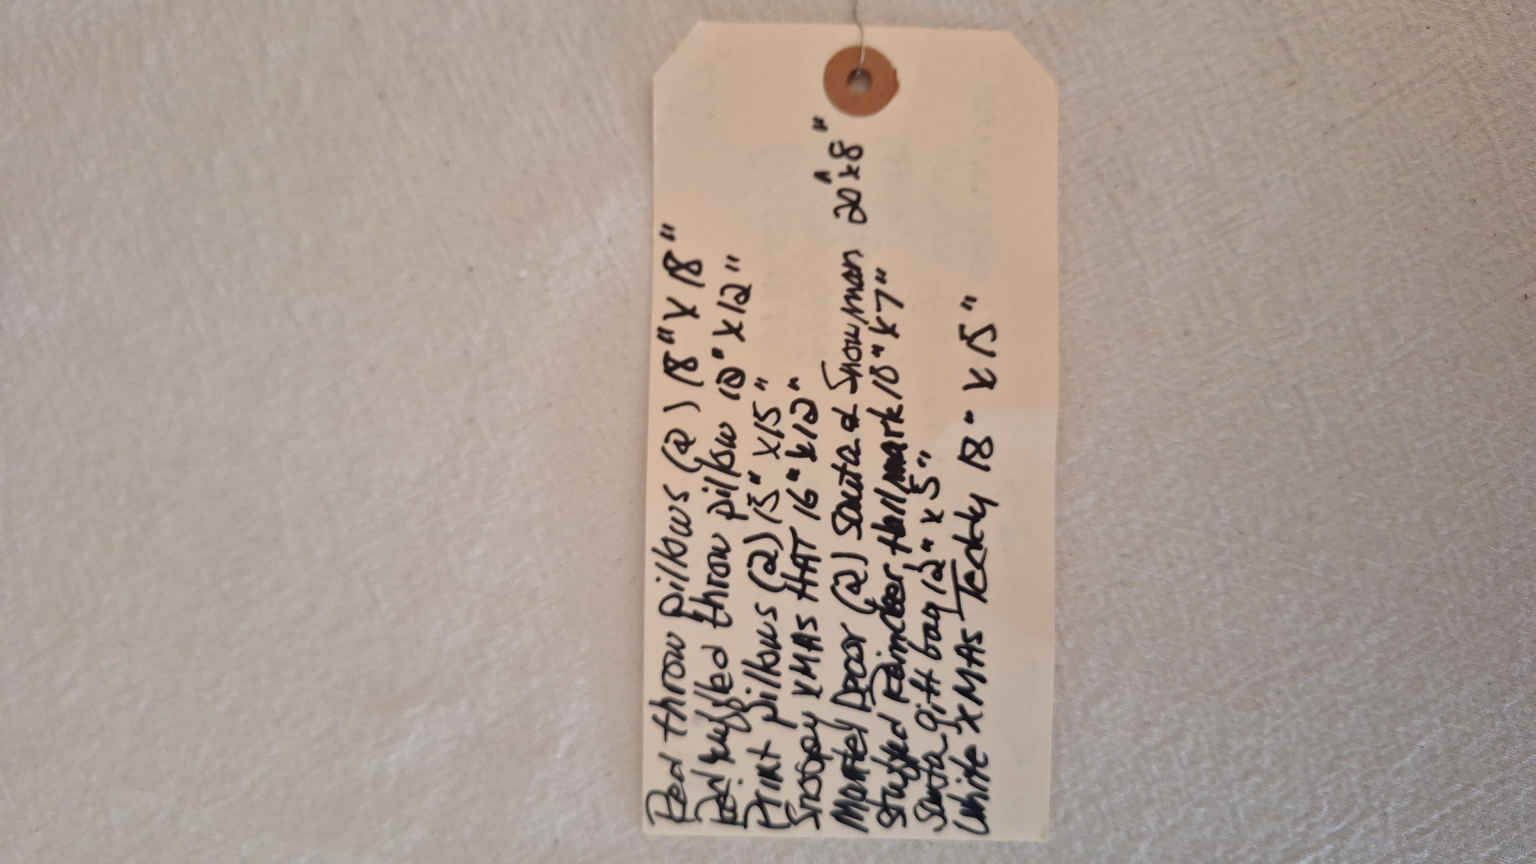 Red throw pillows (2) 18" x 18"
Red ruffled throw pillow 12" x 12"
Print pillows (2) 15" x 15"
Snoopy XMAS HAT 16" x 12"
Mantel Decor (2) Santa & Snowman 20" x 8"
Stuffed Reindeer, Hallmark 18" x 7"
Santa gift bag 12" x 5"
White XMAS Teddy 18" x 15"